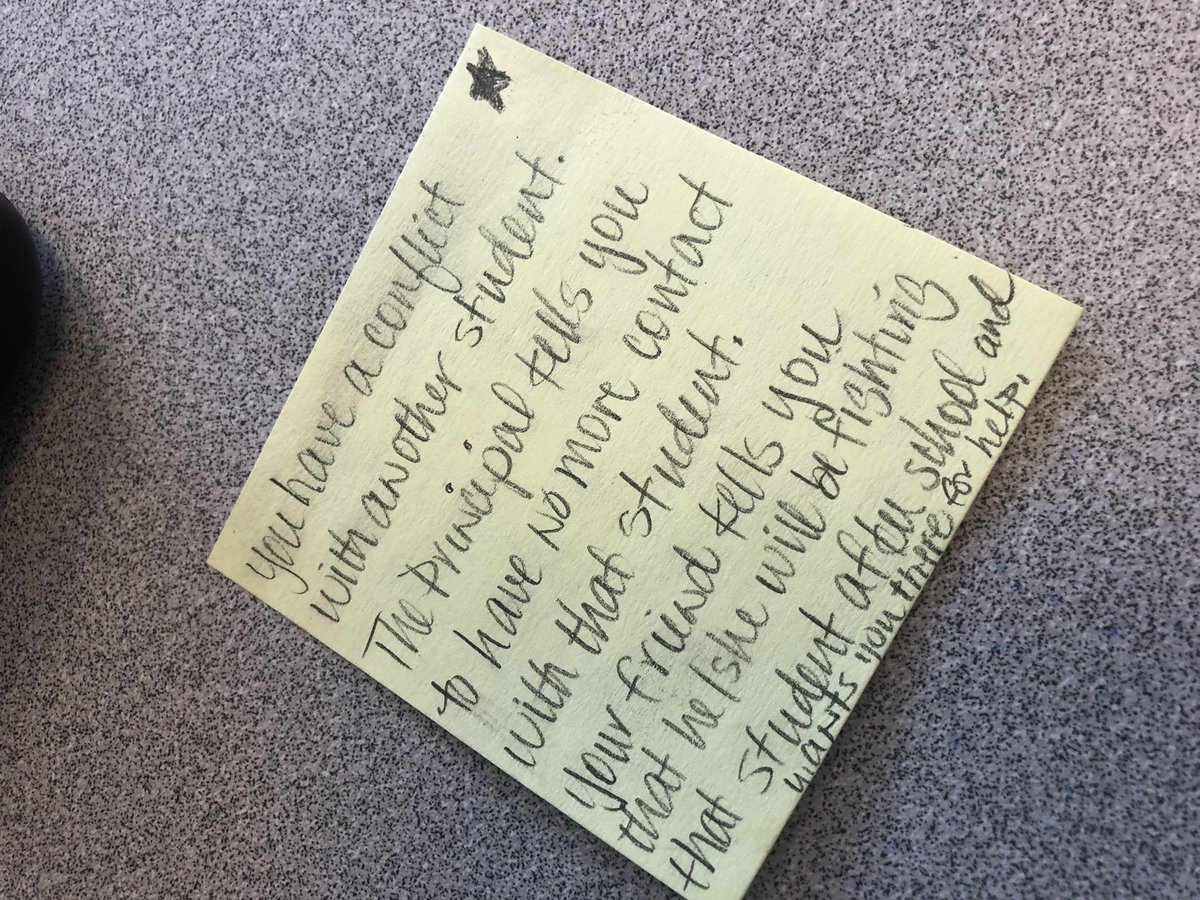 you have a conflict
with another student.
The principal tells you
to have no more contact
with that student.
your friend tells you
that he/she will be fighting
that student after school and
wants you there for help.